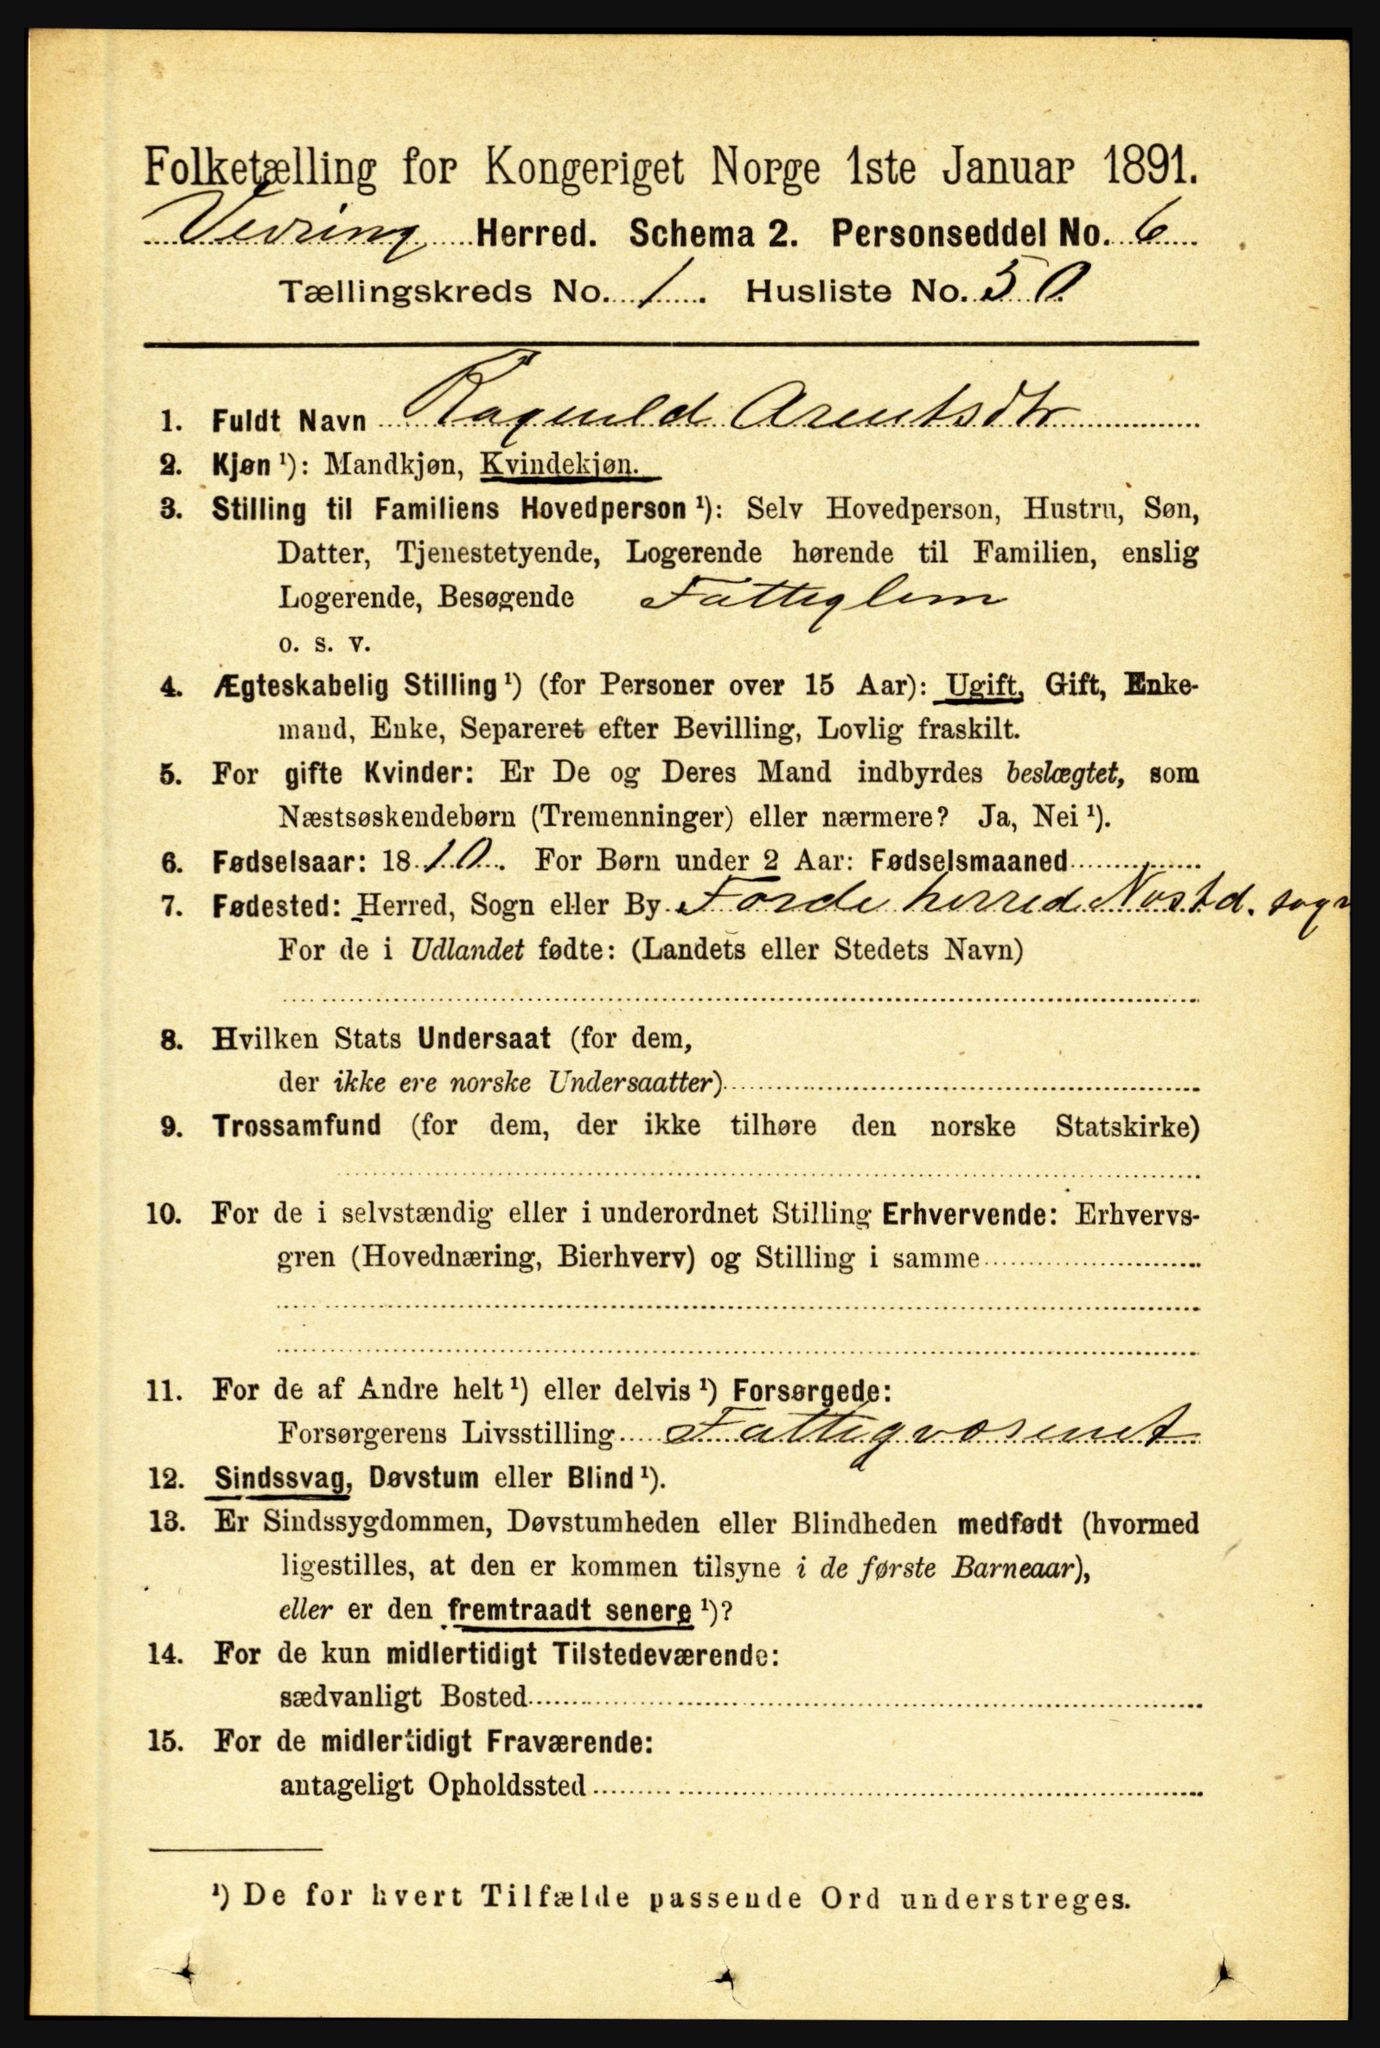 Folketælling for Kongeriget Norge 1ste Januar 1891.
Vevring Herred. Schema 2. Personseddel No. 6
Tællingskreds No. 1. Husliste No. 50.
1. Fuldt Navn Ragnild Arentsdtr
2. Kjøn ¹): Mandkjøn, Kvindekjøn.
3. Stilling til Familiens Hovedperson ¹): Selv Hovedperson, Hustru, Søn,
Datter, Tjenestetyende, Logerende hørende til Familien, enslig
Logerende, Besøgende Fatteglem
o. s. v.
4. Ægteskabelig Stilling ¹) (for Personer over 15 Aar): Ugift, Gift, Enke-
mand, Enke, Separeret efter Bevilling, Lovlig fraskilt.
5. For gifte Kvinder: Er De og Deres Mand indbyrdes beslægtet, som
Næstsøskendebørn (Tremenninger) eller nærmere? Ja, Nei ¹).
6. Fødselsaar: 1810. For Børn under 2 Aar: Fødselsmaaned
7. Fødested: Herred, Sogn eller By Førde herred Nostd. sogn
For de i Udlandet fødte: (Landets eller Stedets Navn)
8. Hvilken Stats Undersaat (for dem,
der ikke ere norske Undersaatter)
9. Trossamfund (for dem, der ikke tilhøre den norske Statskirke)
10. For de i selvstændig eller i underordnet Stilling Erhvervende: Erhvervs-
gren (Hovednæring, Bierhverv) og Stilling i samme
11. For de af Andre helt ¹) eller delvis ¹) Forsørgede:
Forsørgerens Livsstilling Fattigvæsenet
12. Sindssvag, Døvstum eller Blind ¹).
13. Er Sindssygdommen, Døvstumheden eller Blindheden medfødt (hvormed
ligestilles, at den er kommen tilsyne i de første Barneaar),
eller er den fremtraadt senere ¹)?
14. For de kun midlertidigt Tilstedeværende:
sædvanligt Bosted
15. For de midlertidigt Fraværende:
antageligt Opholdssted
¹) De for hvert Tilfælde passende Ord understreges.